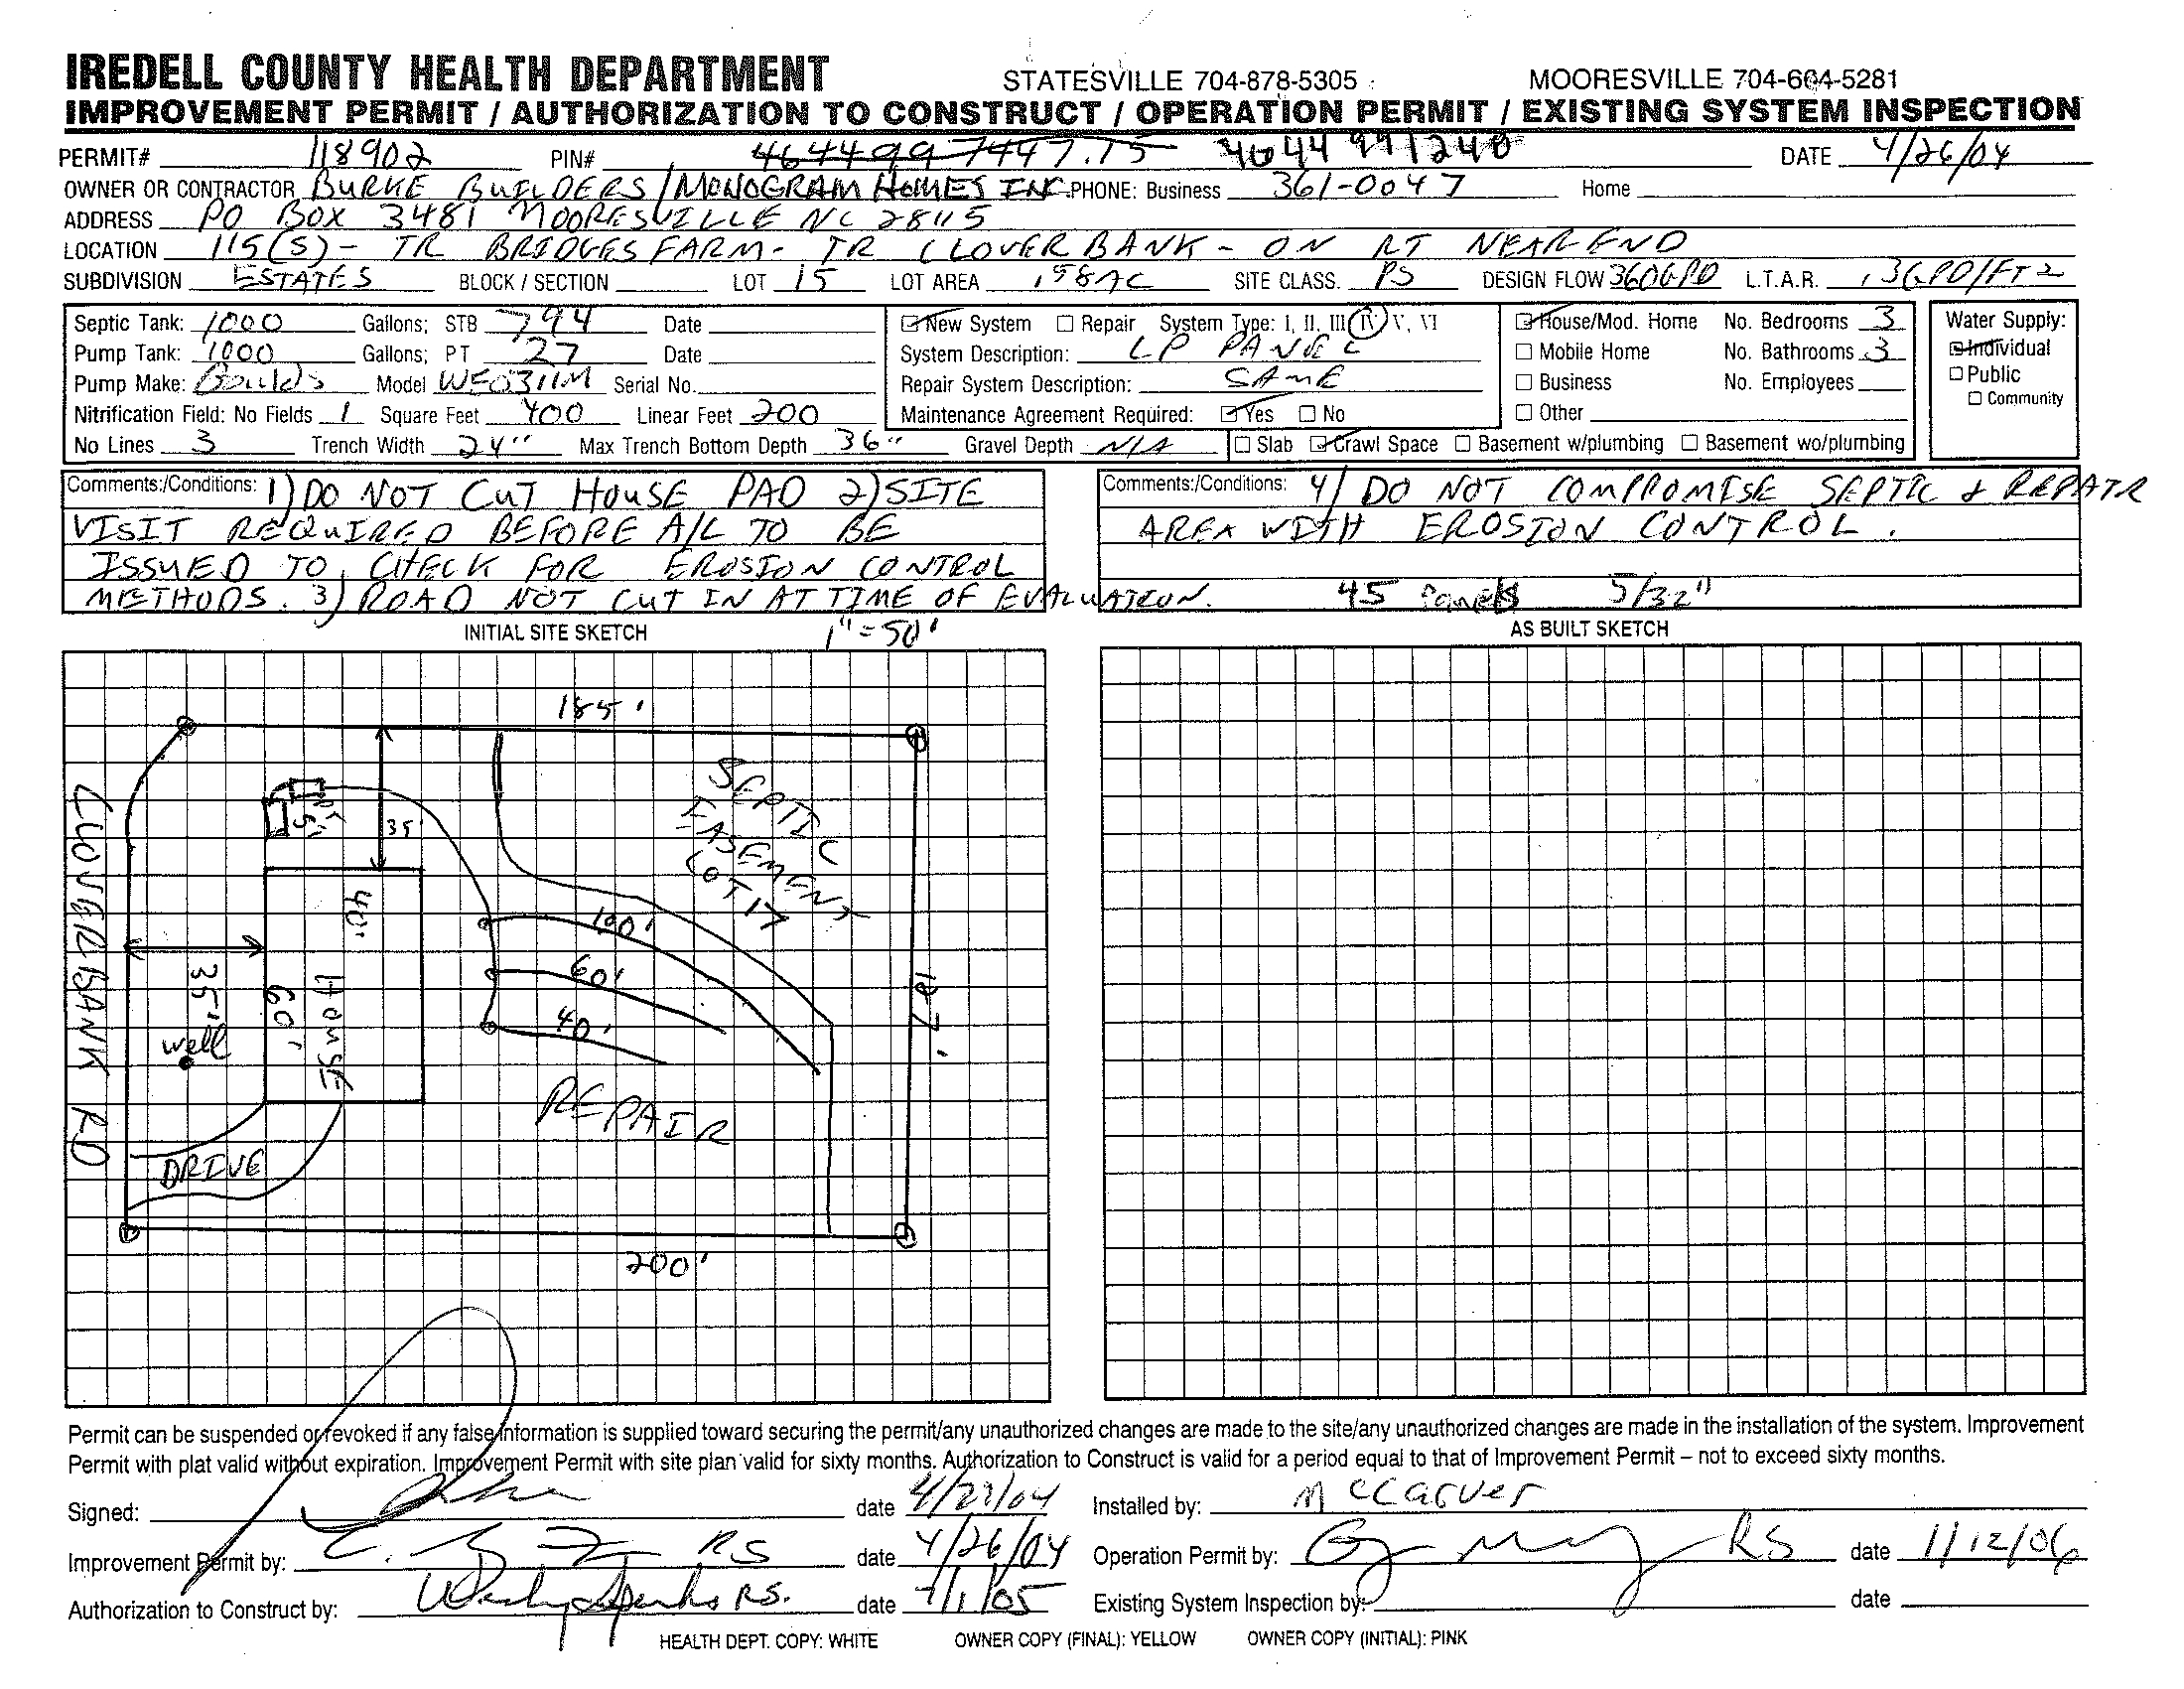 IREDELL COUNTY HEALTH DEPARTMENT STATESVILLE 704-878-5305 MOORESVILLE 704-664-5281
IMPROVEMENT PERMIT / AUTHORIZATION TO CONSTRUCT / OPERATION PERMIT / EXISTING SYSTEM INSPECTION
PERMIT# 118902 PIN# 4644 99 7447.15 4644 991240 DATE 4/26/04
OWNER OR CONTRACTOR BURKE BUILDERS/MONOGRAM HOMES INC. PHONE: Business 361-0047 Home
ADDRESS PO BOX 3481 MOORESVILLE NC 28115
LOCATION 115(S) - TR BRIDGES FARM - TR CLOVERBANK - ON RT NEAR END
SUBDIVISION ESTATES BLOCK / SECTION LOT 15 LOT AREA .98AC SITE CLASS. PS DESIGN FLOW 360GPD L.T.A.R. .3GPD/FT2
Septic Tank: 1000 Gallons; STB 794 Date
Pump Tank: 1000 Gallons; PT 27 Date
Pump Make: Goulds Model WE0311M Serial No.
Nitrification Field: No Fields 1 Square Feet 400 Linear Feet 200
No Lines 3 Trench Width 24" Max Trench Bottom Depth 36" Gravel Depth N/A
New System Repair System Type: I, II, III, IV, V, VI
System Description: LP PANEL
Repair System Description: SAME
Maintenance Agreement Required: Yes No
House/Mod. Home No. Bedrooms 3
Mobile Home No. Bathrooms 3
Business No. Employees
Other
Slab Crawl Space Basement w/plumbing Basement wo/plumbing
Water Supply:
Individual
Public
Community
Comments:/Conditions: 1) DO NOT CUT HOUSE PAD 2) SITE
VISIT REQUIRED BEFORE A/C TO BE
ISSUED TO CHECK FOR EROSION CONTROL
METHODS. 3) ROAD NOT CUT IN AT TIME OF EVALUATION.
Comments:/Conditions: 4) DO NOT COMPROMISE SEPTIC & REPAIR
AREA WITH EROSION CONTROL.
45 Panels 5/32"
INITIAL SITE SKETCH 1"=50'
AS BUILT SKETCH
185'
SEPTIC
EASEMENT
LOT 17
35'
5'
CLOVERBANK RD
40'
100'
60'
40'
187'
35'
well
60'
House
REPAIR
DRIVE
200'
Permit can be suspended or revoked if any false information is supplied toward securing the permit/any unauthorized changes are made to the site/any unauthorized changes are made in the installation of the system. Improvement
Permit with plat valid without expiration. Improvement Permit with site plan valid for sixty months. Authorization to Construct is valid for a period equal to that of Improvement Permit – not to exceed sixty months.
Signed: date 4/23/04 Installed by: McCarver
Improvement Permit by: RS date 4/26/04 Operation Permit by: RS date 1/12/06
Authorization to Construct by: RS. date 7/1/05 Existing System Inspection by: date
HEALTH DEPT. COPY: WHITE OWNER COPY (FINAL): YELLOW OWNER COPY (INITIAL): PINK